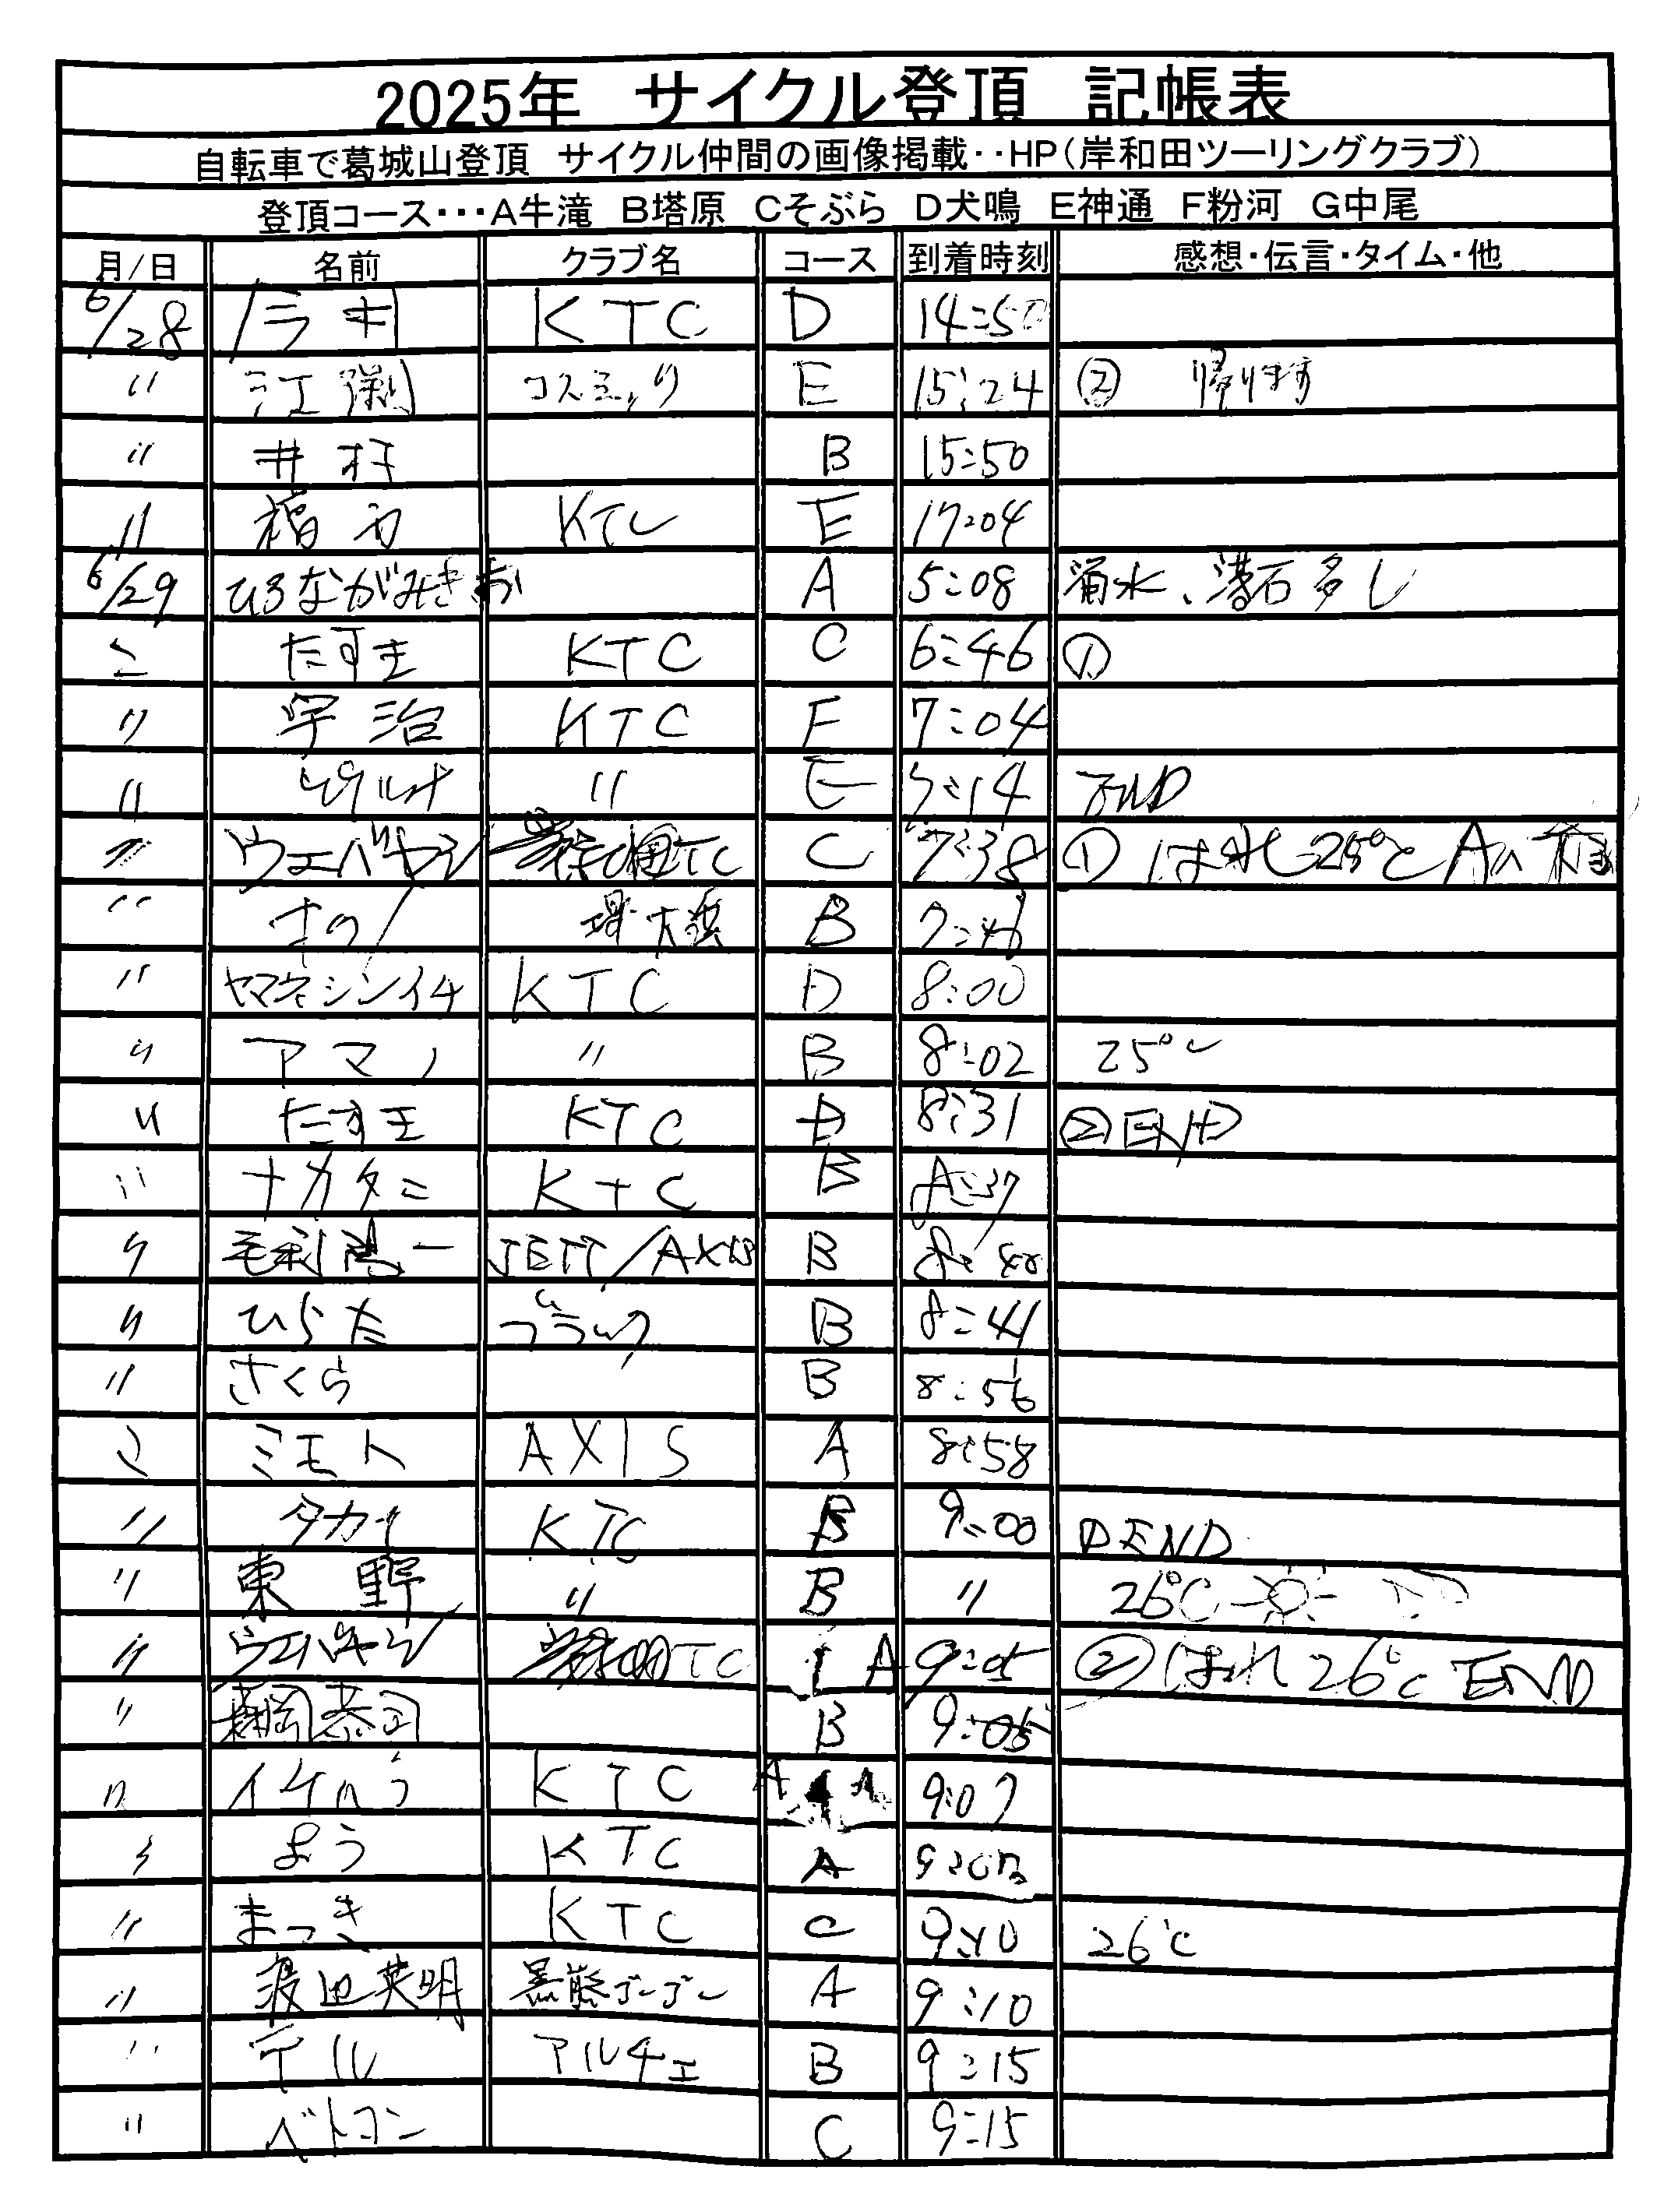 2025年 サイクル登頂 記帳表
自転車で葛城山登頂 サイクル仲間の画像掲載‥HP(岸和田ツーリングクラブ)
登頂コース…A牛滝 B塔原 Cそぶら D犬鳴 E神通 F粉河 G中尾
月/日 名前 クラブ名 コース 到着時刻 感想・伝言・タイム・他
6/28 KTC D 14:50
〃 コスミック E 15:24 ② 帰ります
〃 井村 B 15:50
〃 KTC E 17:04
6/29 ひろながみきお A 5:08 湧水、落石多し
〃 たすま KTC C 6:46 ①
〃 宇治 KTC F 7:04
〃 〃 E 7:14 END
〃 ウエバヤシ TC C 7:38 ① はれ 25℃ Aへ
〃 さの 堺大浜 B 7:46
〃 ヤマネシンイチ KTC D 8:00
〃 アマノ 〃 B 8:02 25℃
〃 たすま KTC D 8:31 ②END
〃 ナカタニ KTC B 8:37
〃 毛利 一 JETT/AXIS B 8:40
〃 ひらた ブラック B 8:41
〃 さくら B 8:56
〃 ミモト AXIS A 8:58
〃 タカイ KTC B 9:00 ①END
〃 東野 〃 B 〃 26℃
〃 ウエバヤシ TC A 9:05 ②はれ 26℃ END
〃 岡恭司 B 9:05
〃 KTC A 9:07
〃 よう KTC A
〃 まつき KTC C 9:10 26℃
〃 渡辺英明 黒熊ゴーゴー A 9:10
〃 テル アルチェ B 9:15
〃 ベトコン C 9:15